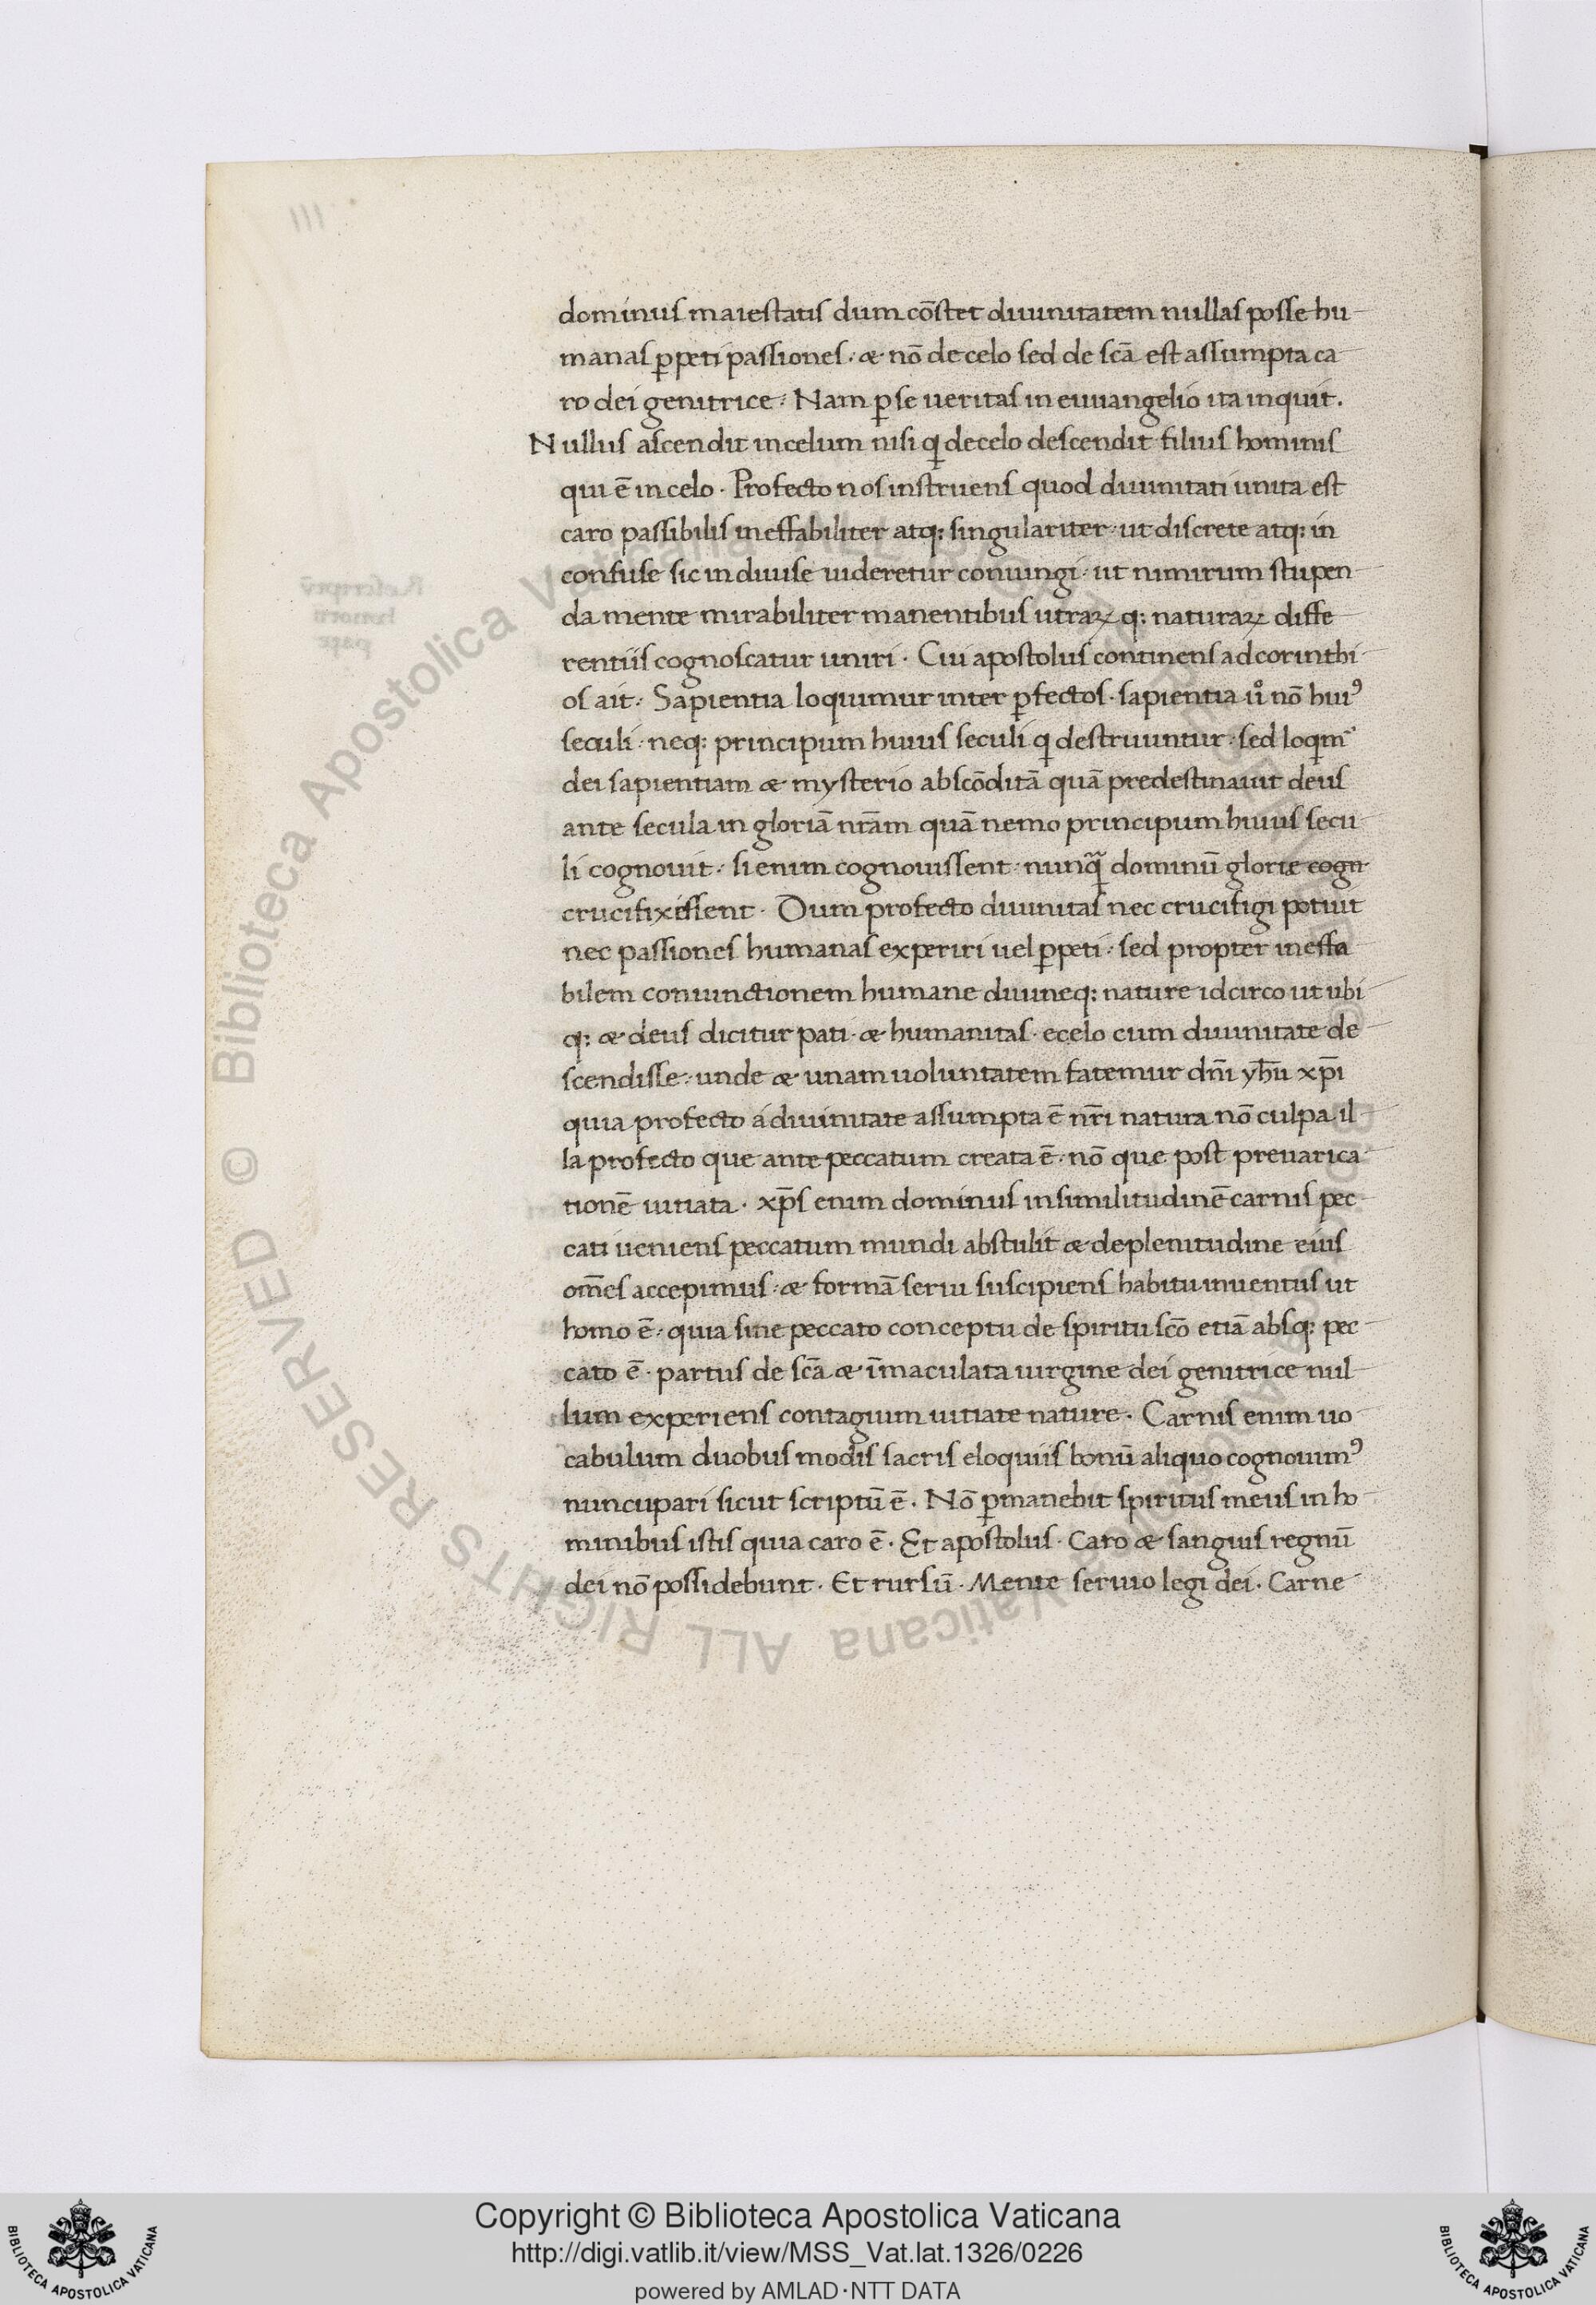 dominus maiestatis dum cōstet diuinitatem nullas posse hu
manas ꝑpeti passiones · & nō de celo sed de scā est assumpta ca
ro dei genitrice : Nam ꝑ se ueritas in euuangelio ita inquit .
Nullus ascendit in celum nisi qi de celo descendit filius hominis
qui ē in celo · Profecto nos instruens quod diuinitati unita est
caro passibilis ineffabiliter atq: singulariter · ut discrete atq: in
confuse sic indiuise uideretur coniungi · ut nimirum stupen
da mente mirabiliter manentibus utraꝝ q: naturaꝝ diffe
rentiis cognoscatur uniri · Cui apostolus continens ad corinthi
os ait : Sapientia loquimur inter ꝑfectos · sapientia uͦ nō huiꝰ
seculi · neq: principum huius seculi qi destruuntur · sed loqimꝰ
dei sapientiam & mysterio abscōditā quā predestinauit deus
ante secula in gloriā nr̄am quā nemo principum huius secu
li cognouit · si enim cognouissent · nunqͣ dominū glorie cogn
crucifixissent · Dum profecto diuinitas nec crucifigi potuit
nec passiones humanas experiri uel ꝑpeti · sed propter ineffa
bilem coniunctionem humane diuineq: nature idcirco ut ubi
q: & deus dicitur pati · & humanitas · e celo cum diuinitate de
scendisse · unde & unam uoluntatem fatemur dn̄i yh̄u xp̄i
quia profecto á diuinitate assumpta ē nr̄i natura nō culpa il
la profecto que ante peccatum creata ē · nō que post preuarica
tionē uitiata · xp̄s enim dominus in similitudinē carnis pec
cati ueniens peccatum mundi abstulit & de plenitudine eius
om̄es accepimus · & formā serui suscipiens habitu inuentus ut
homo ē · quia sine peccato conceptu de spiritu scō etiā absq: pec
cato ē · partus de scā & īmaculata uirgine dei genitrice nul
lum experiens contagium uitiate nature · Carnis enim uo
cabulum duobus modis sacris eloquiis bonū aliquo cognouimꝰ
nuncupari sicut scriptū ē . Nō ꝑmanebit spiritus meus in ho
minibus istis quia caro ē . Et apostolus · Caro & sanguis regnū
dei nō possidebunt · Et rursū · Mente seruio legi dei · Carne
© Biblioteca Apostolica Vaticana ALL RIGHTS RESERVED
Copyright © Biblioteca Apostolica Vaticana
http://digi.vatlib.it/view/MSS_Vat.lat.1326/0226
powered by AMLAD·NTT DATA
BIBLIOTECA APOSTOLICA VATICANA
BIBLIOTECA APOSTOLICA VATICANA